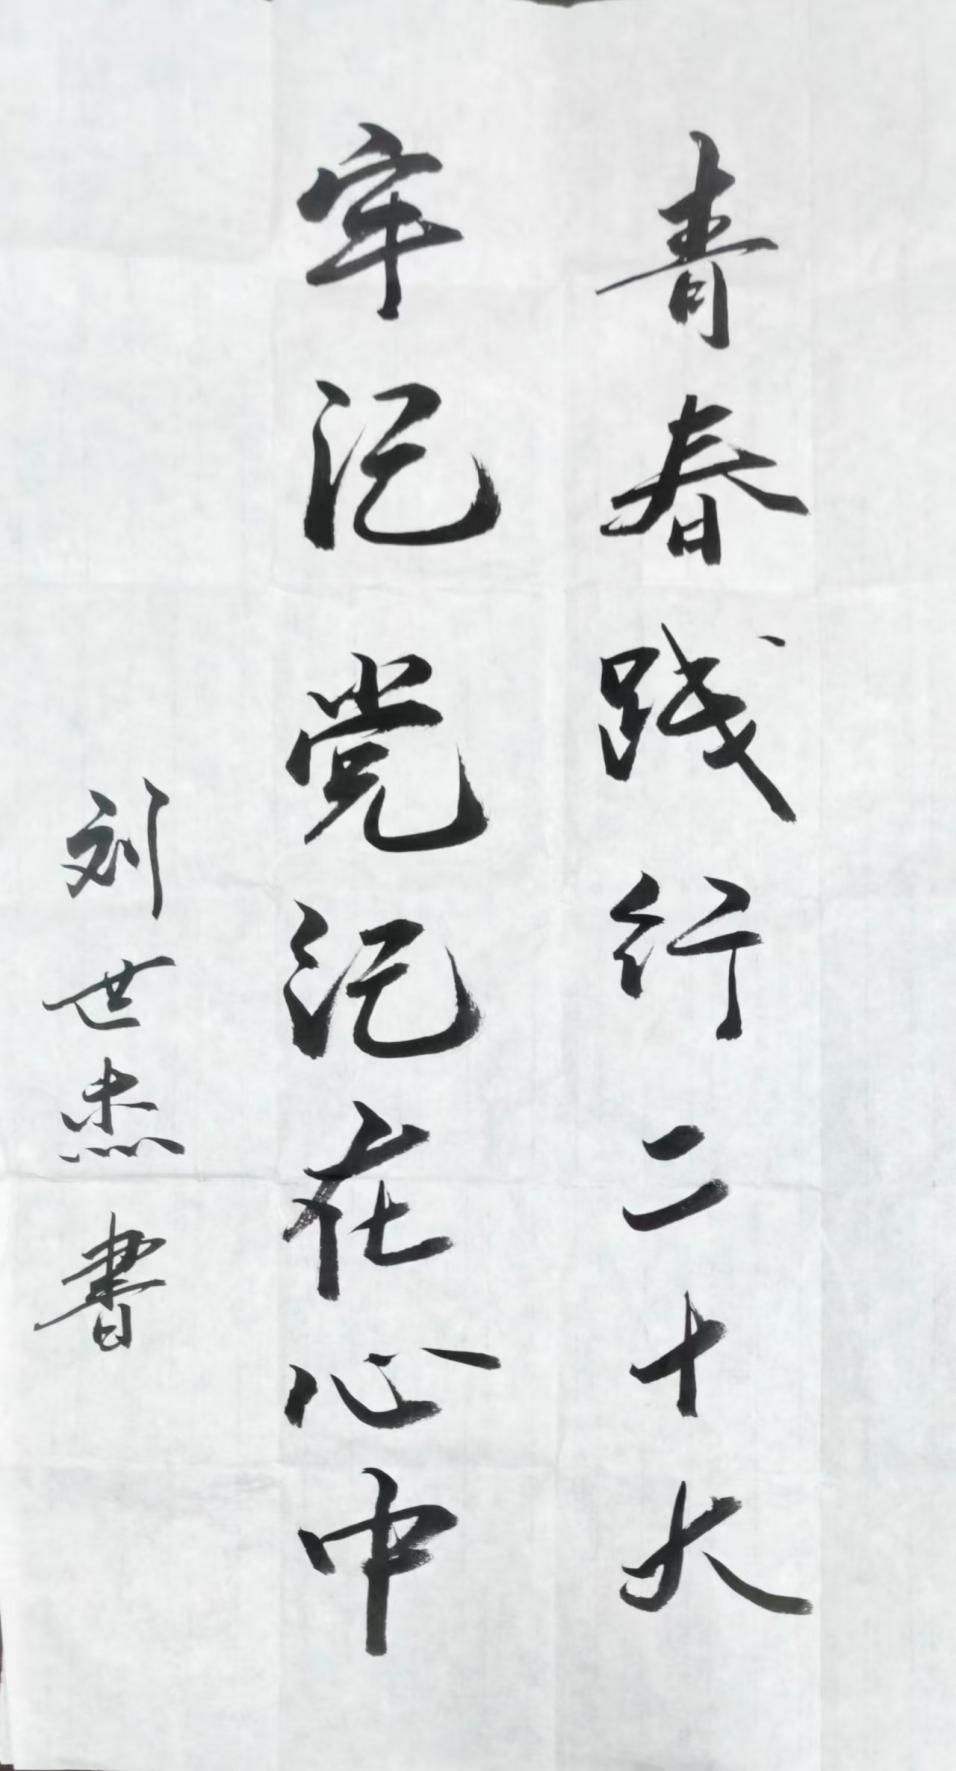 青春践行二十大
牢记党记在心中
刘世杰書